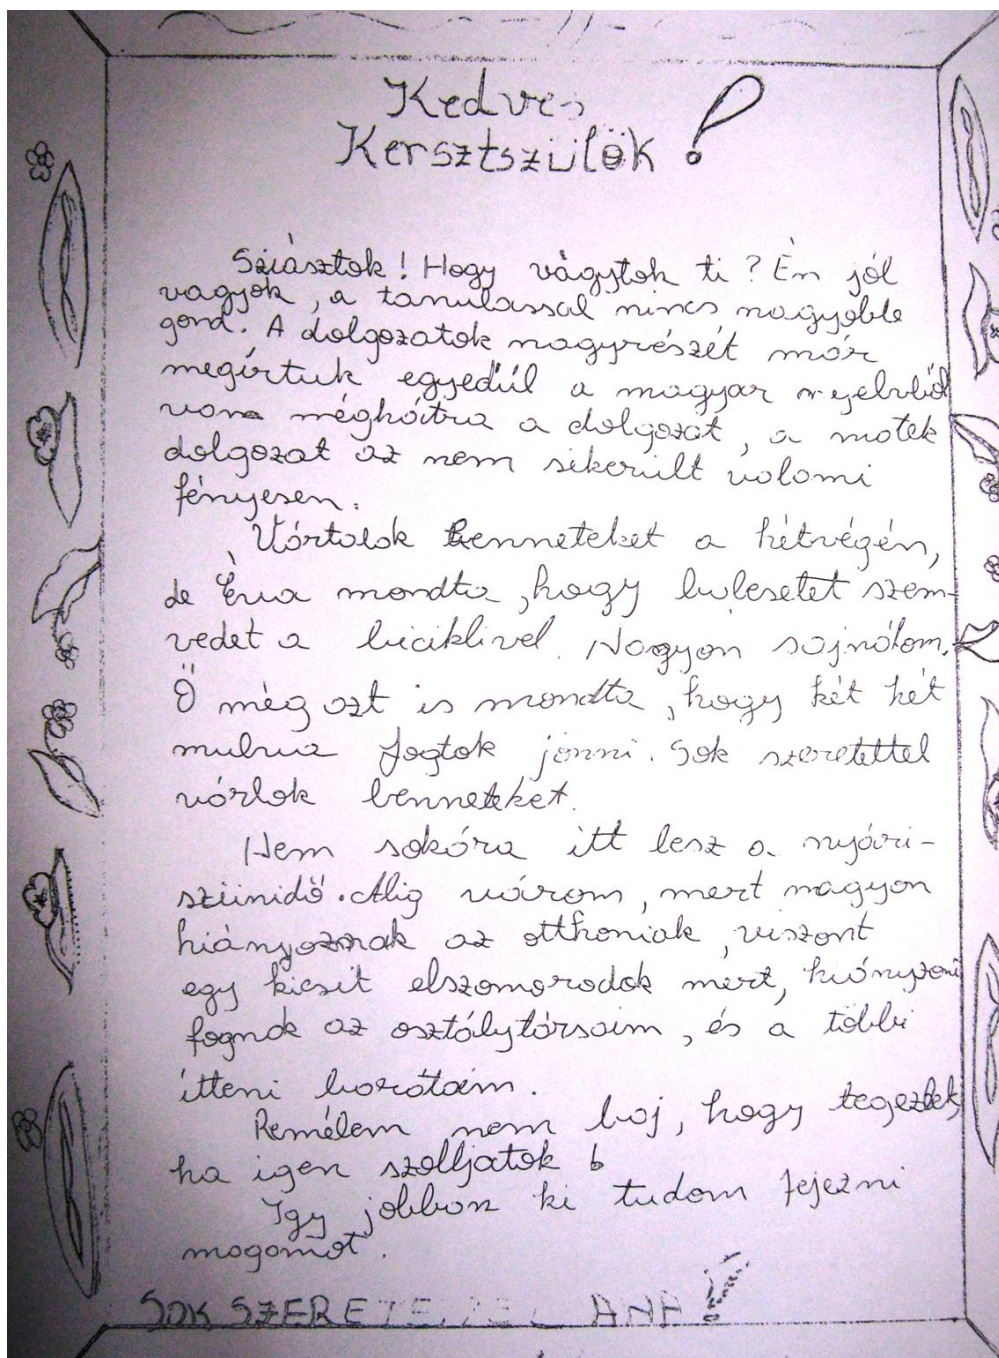 Kedves
Kersztszülök!
Sziásztok! Hogy vágytok ti? Én jól
vagyok, a tanulással nincs nagyobb
gond. A dolgozatok nagyrészét már
megírtuk egyedűl a magyar nyelvből
van méghátra a dolgozat, a matek
dolgozat az nem sikerült valami
fényesen.
Vártalak benneteket a hétvégén,
de Éva mondta, hogy balesetet szem-
vedet a biciklivel. Nagyon sajnálom.
Ő még azt is mondta, hogy két hét
mulva fogtok jönni. Sok szeretettel
várlok benneteket.
Nem sokára itt lesz a nyári-
szünidő. Alig várom, mert nagyon
hiányoznak az otthoniak, viszont
egy kicsit elszomorodok mert, hiányzni
fognak az osztálytársaim, és a többi
itteni barátaim.
Remélem nem baj, hogy tegezlek,
ha igen szolljatok
Igy jobban ki tudom fejezni
magamat.
SOK SZERETETTEL ANA!